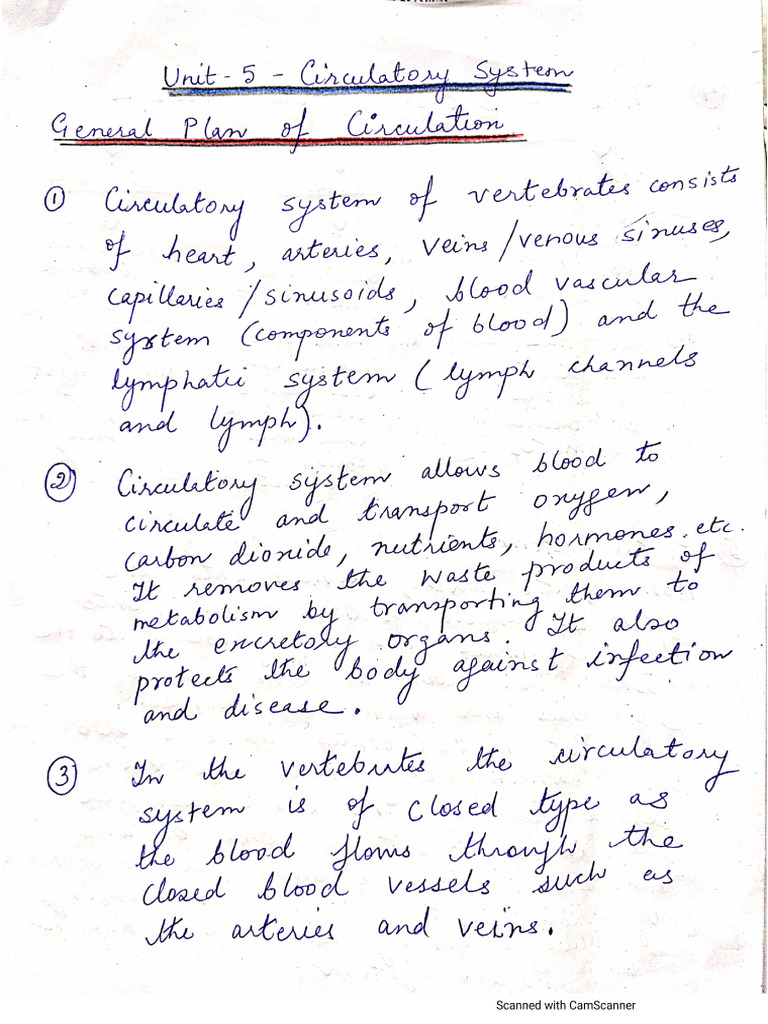 Unit-5 - Circulatory System
General Plan of Circulation
① Circulatory system of vertebrates consists
of heart, arteries, veins/venous sinuses,
capillaries/sinusoids, blood vascular
system (components of blood) and the
lymphatic system (lymph channels
and lymph).
② Circulatory system allows blood to
circulate and transport oxygen,
carbon dioxide, nutrients, hormones etc.
It removes the waste products of
metabolism by transporting them to
the excretory organs. It also
protects the body against infection
and disease.
③ In the vertebrates the circulatory
system is of closed type as
the blood flows through the
closed blood vessels such as
the arteries and veins.
Scanned with CamScanner